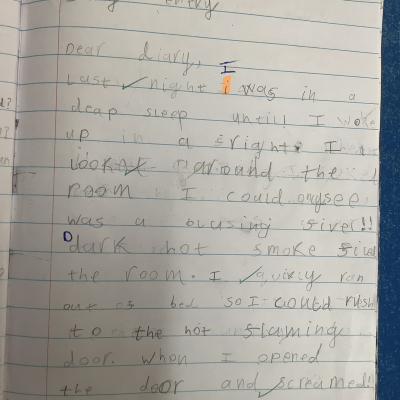 entry
Dear diary, I
Last night i was in a
deap sleep untill I woke
up in a fright. I
lookt around the
room I could onysee
was a blusing fire!!
D dark hot smoke
the room. I quixly ran
out of bed so I could rush
to the hot flaming
door. when I opened
the door and screamed!!